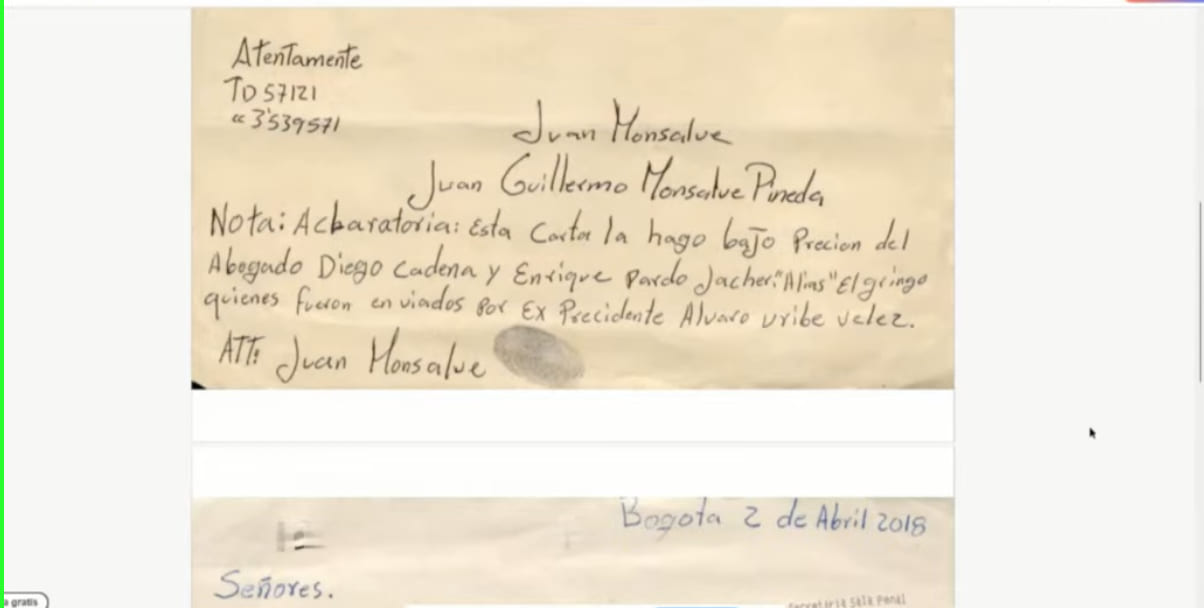 Atentamente
TD 57121
cc 3'539571
Juan Monsalve
Juan Guillermo Monsalve Pineda
Nota: Acbaratoria: Esta Carta la hago bajo Precion del
Abogado Diego Cadena y Enrique Pardo Jacher."Alias" El gringo
quienes fueron enviados por Ex Precidente Alvaro uribe velez.
ATT: Juan Monsalve
Bogota 2 de Abril 2018
Señores.
Secretaria Sala Penal
a gratis